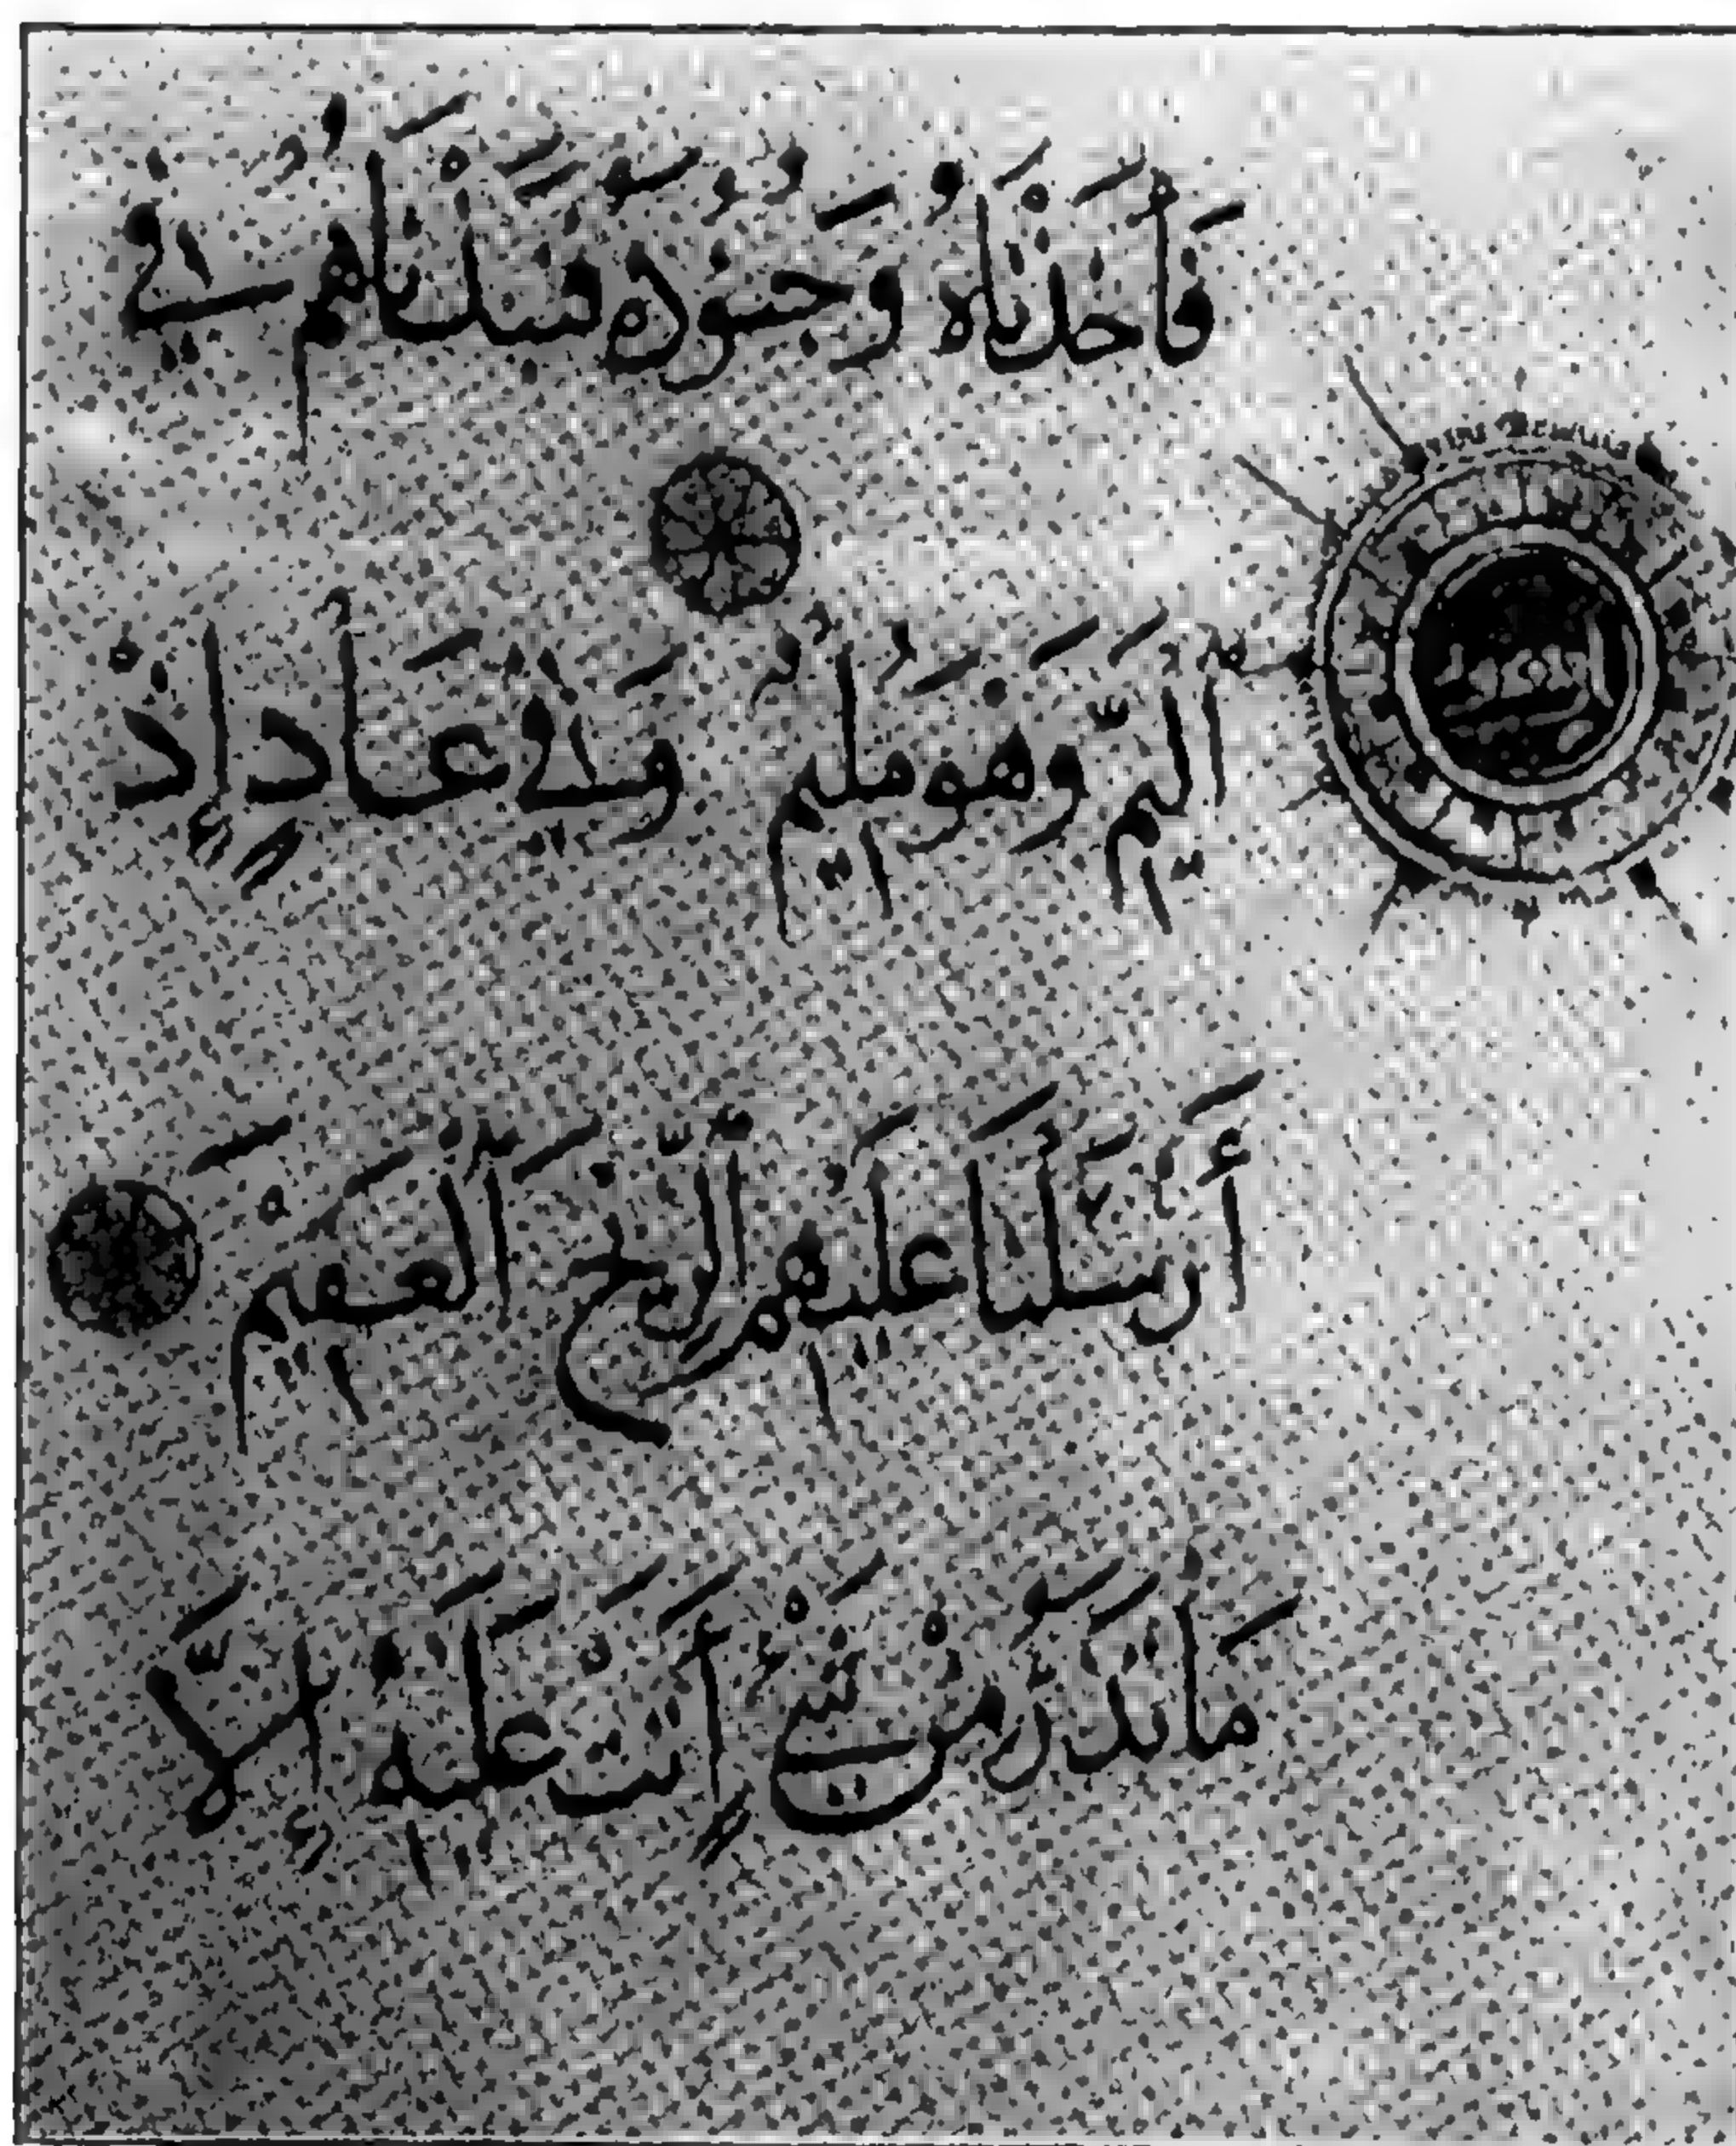 فَأَخَذْنَاهُ وَجُنُودَهُ فَنَبَذْنَاهُمْ فِي
ٱلْيَمِّ وَهُوَ مُلِيمٌ وَفِي عَادٍ إِذْ
أَرْسَلْنَا عَلَيْهِمُ ٱلرِّيحَ ٱلْعَقِيمَ
مَا تَذَرُ مِنْ شَيْءٍ أَتَتْ عَلَيْهِ إِلَّا